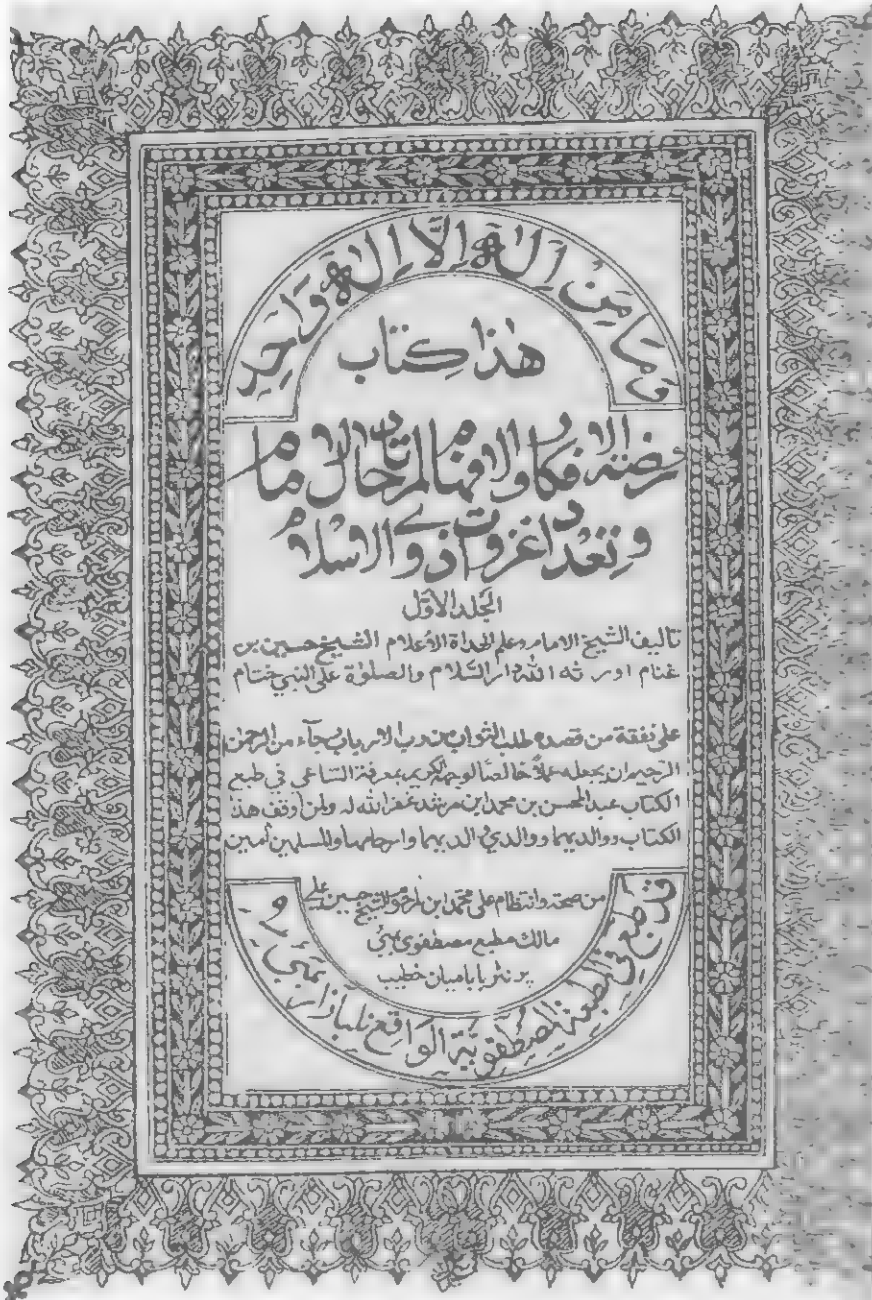 وَمَا مِنْ إِلٰهٍ إِلَّا إِلٰهٌ وَاحِدٌ
هذا كتاب
روضة الافكار والافهام لمرتاد حال الامام
وتعداد غزوات ذوي الاسلام
الجلد الاوّل
تاليف الشيخ الامام وعلم الهداة الاعلام الشيخ حسين بن
غنام اورثه الله دار السّلام والصلوٰة على النبي ختام
على نفقة من قصده طلب الثواب من رب الارباب رجآء من الرحمن
الرحيم ان يجعله عملاً خالصًا لوجهه الكريم بمعرفة الساعى فى طبع
الكتاب عبد المحسن بن محمد ابن مرشد غفر الله له ولمن أوقف هذا
الكتاب ووالديهما ووالدي والديهما وارحامهما والمسلمين أمين
من صحة وانتظام على محمد ابن المرحوم الشيخ حسين على
مالك مطبع مصطفوى بمبئى
پرنٹر بابا ميان خطيب
قد طبع في المطبعة المصطفوية الواقع بازار بمبئ